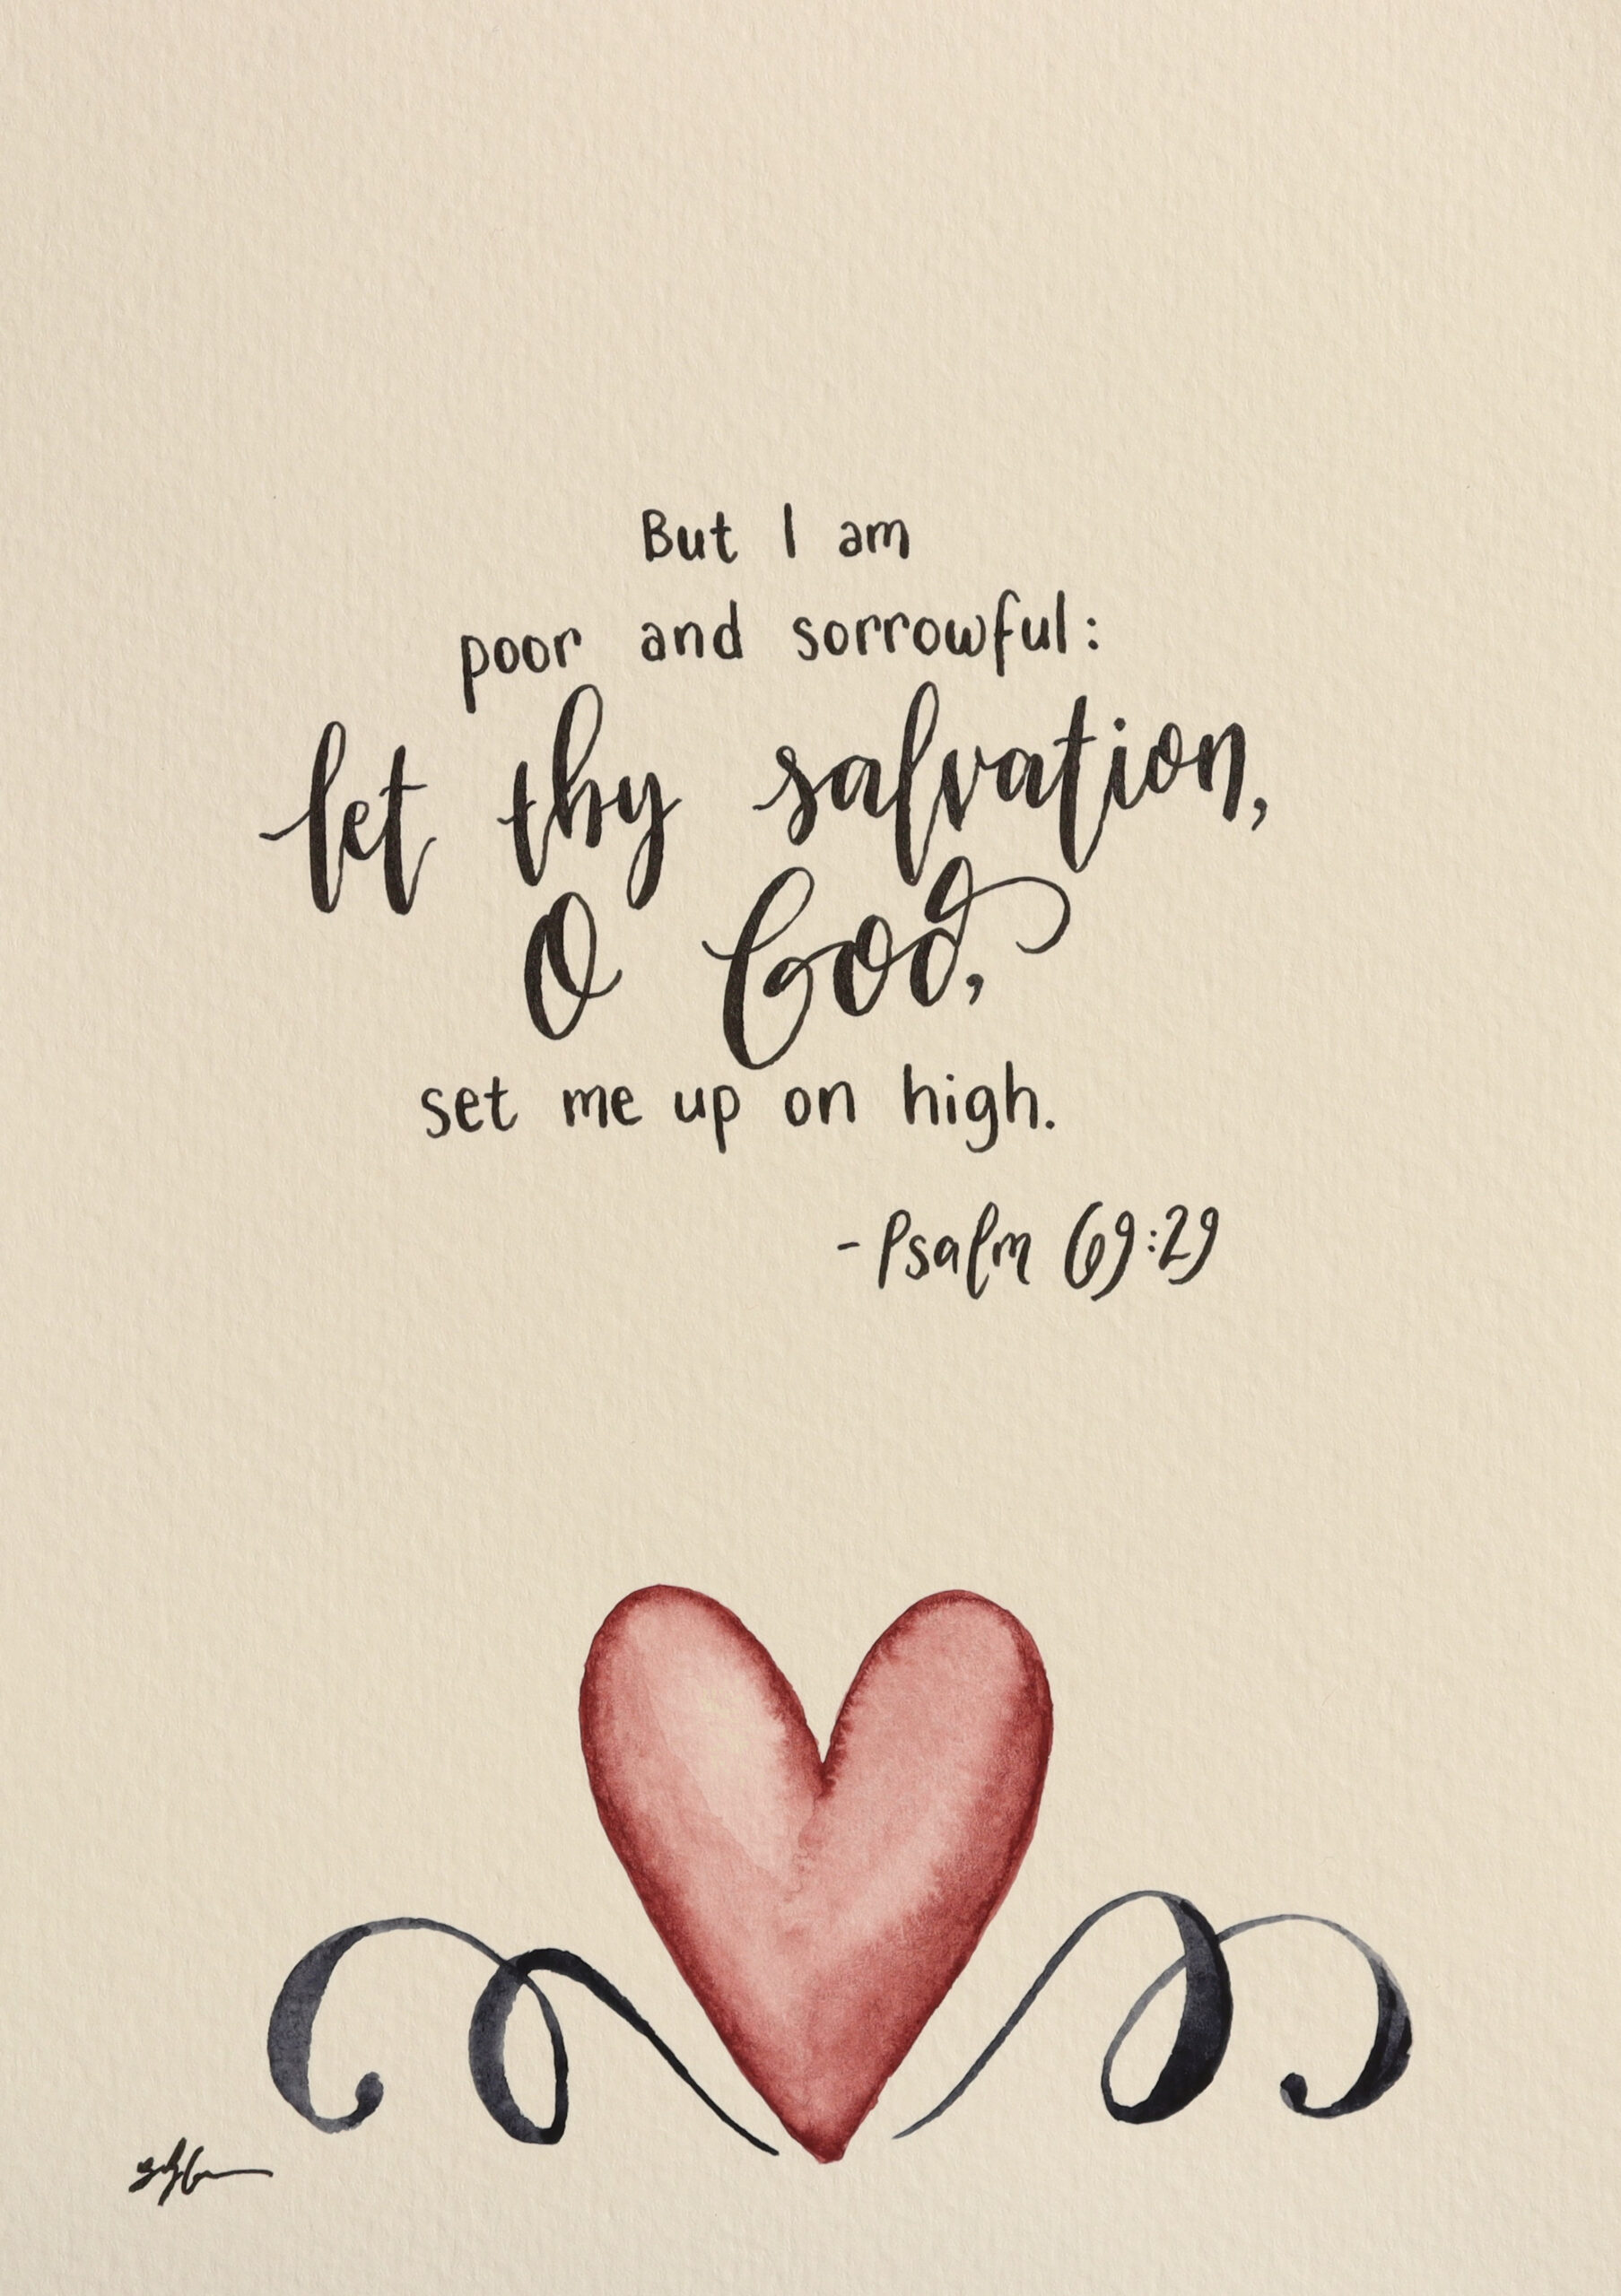 But I am
poor and sorrowful:
let thy salvation,
O God,
set me up on high.
-Psalm 69:29